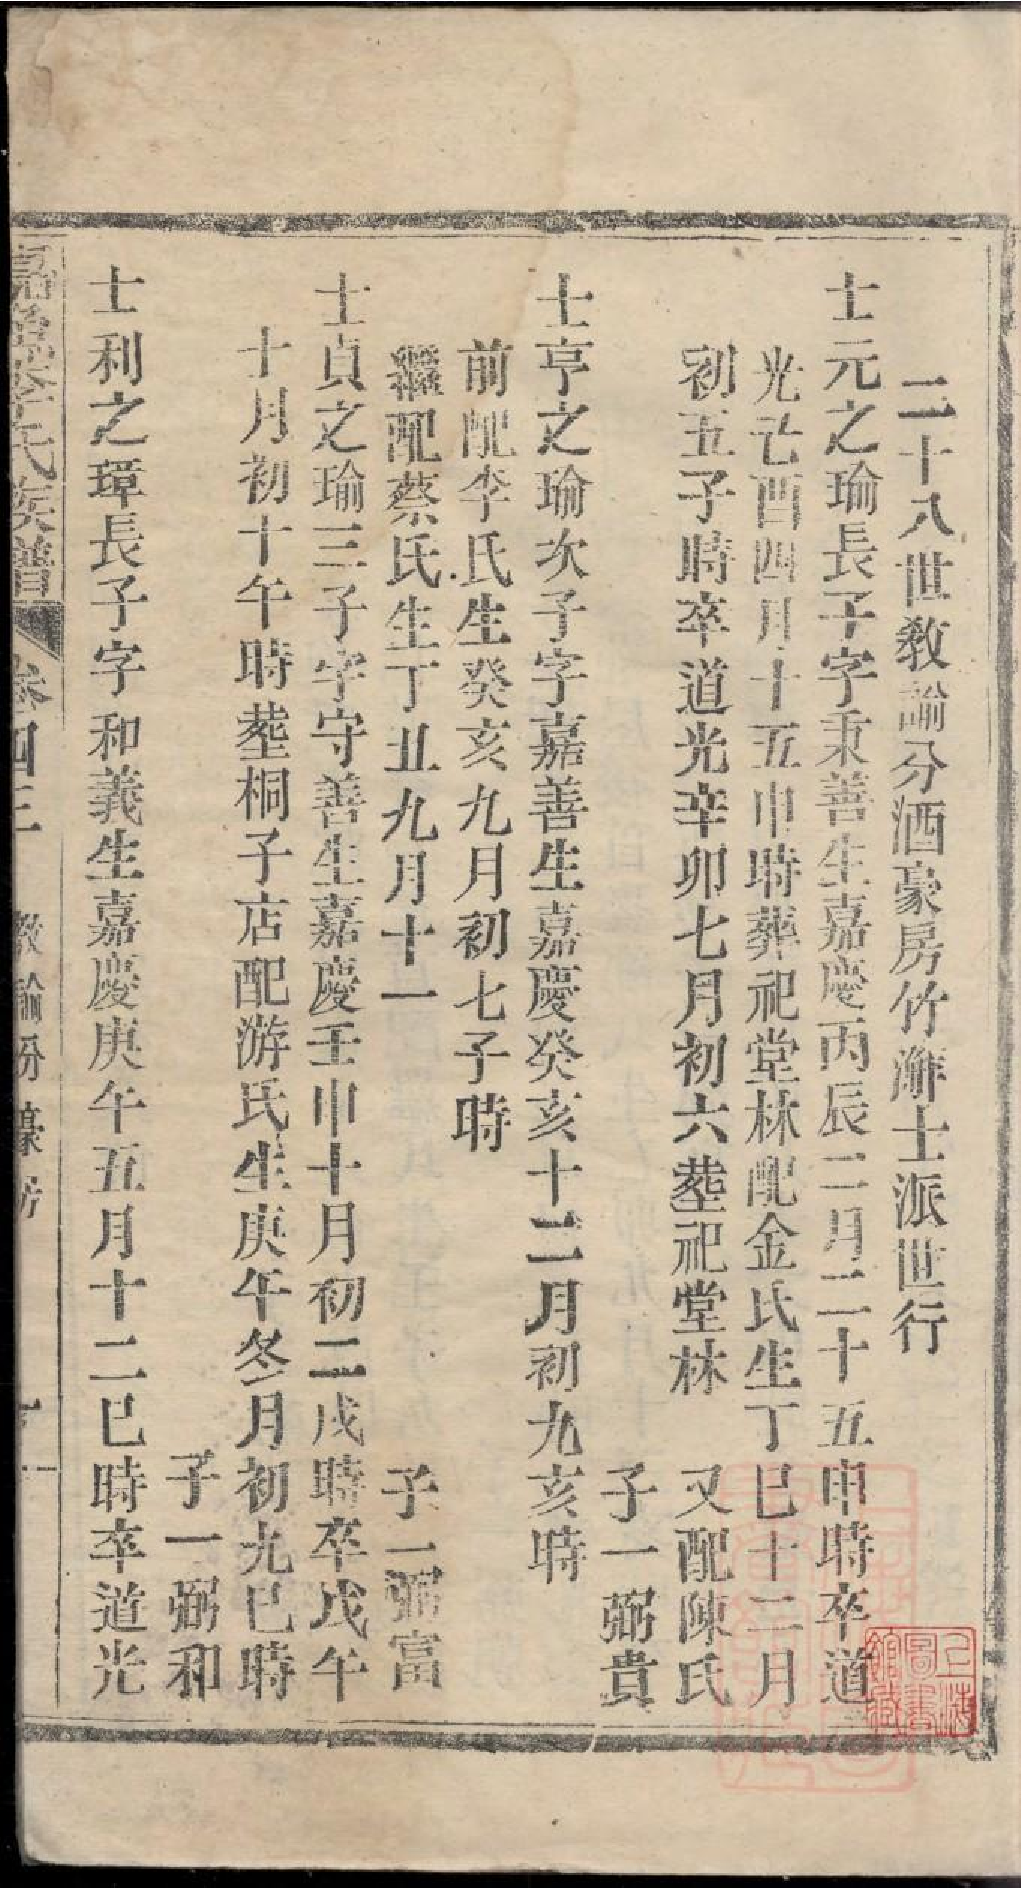 二十八世教諭分酒豪房竹瀞士派世行
士元之瑜長子字秉善生嘉慶丙辰二月二十五申時卒道
光乙酉四月十五申時葬祀堂林配金氏生丁巳十二月
初五子時卒道光辛卯七月初六塟祀堂林 又配陳氏
子一弼貴
士亨之瑜次子字嘉善生嘉慶癸亥十二月初九亥時
前配李氏生癸亥九月初七子時
繼配蔡氏生丁丑九月十一 子一弼富
士貞之瑜三子字守善生嘉慶壬申十月初二戌時卒戊午
十月初十午時塟桐子店配游氏生庚午冬月初九巳時
子一弼和
士利之璋長子字和義生嘉慶庚午五月十二巳時卒道光
氏族譜
卷四
教諭份 豪房
上海圖書館藏